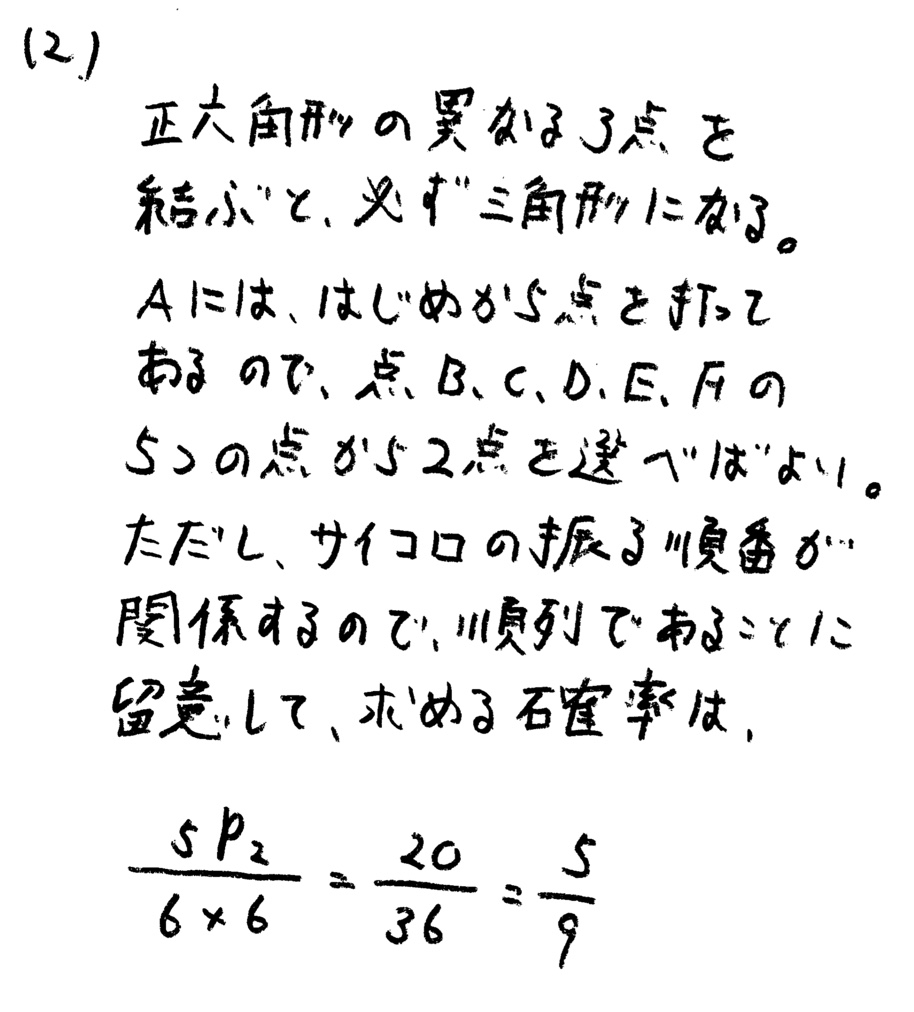 (2)
正六角形の異なる3点を
結ぶと、必ず三角形になる。
Aには、はじめから点を打って
あるので、点B、C、D、E、Fの
5つの点から2点を選べばよい。
ただし、サイコロの振る順番が
関係するので、順列であることに
留意して、求める確率は、
5P2 / 6×6 = 20/36 = 5/9